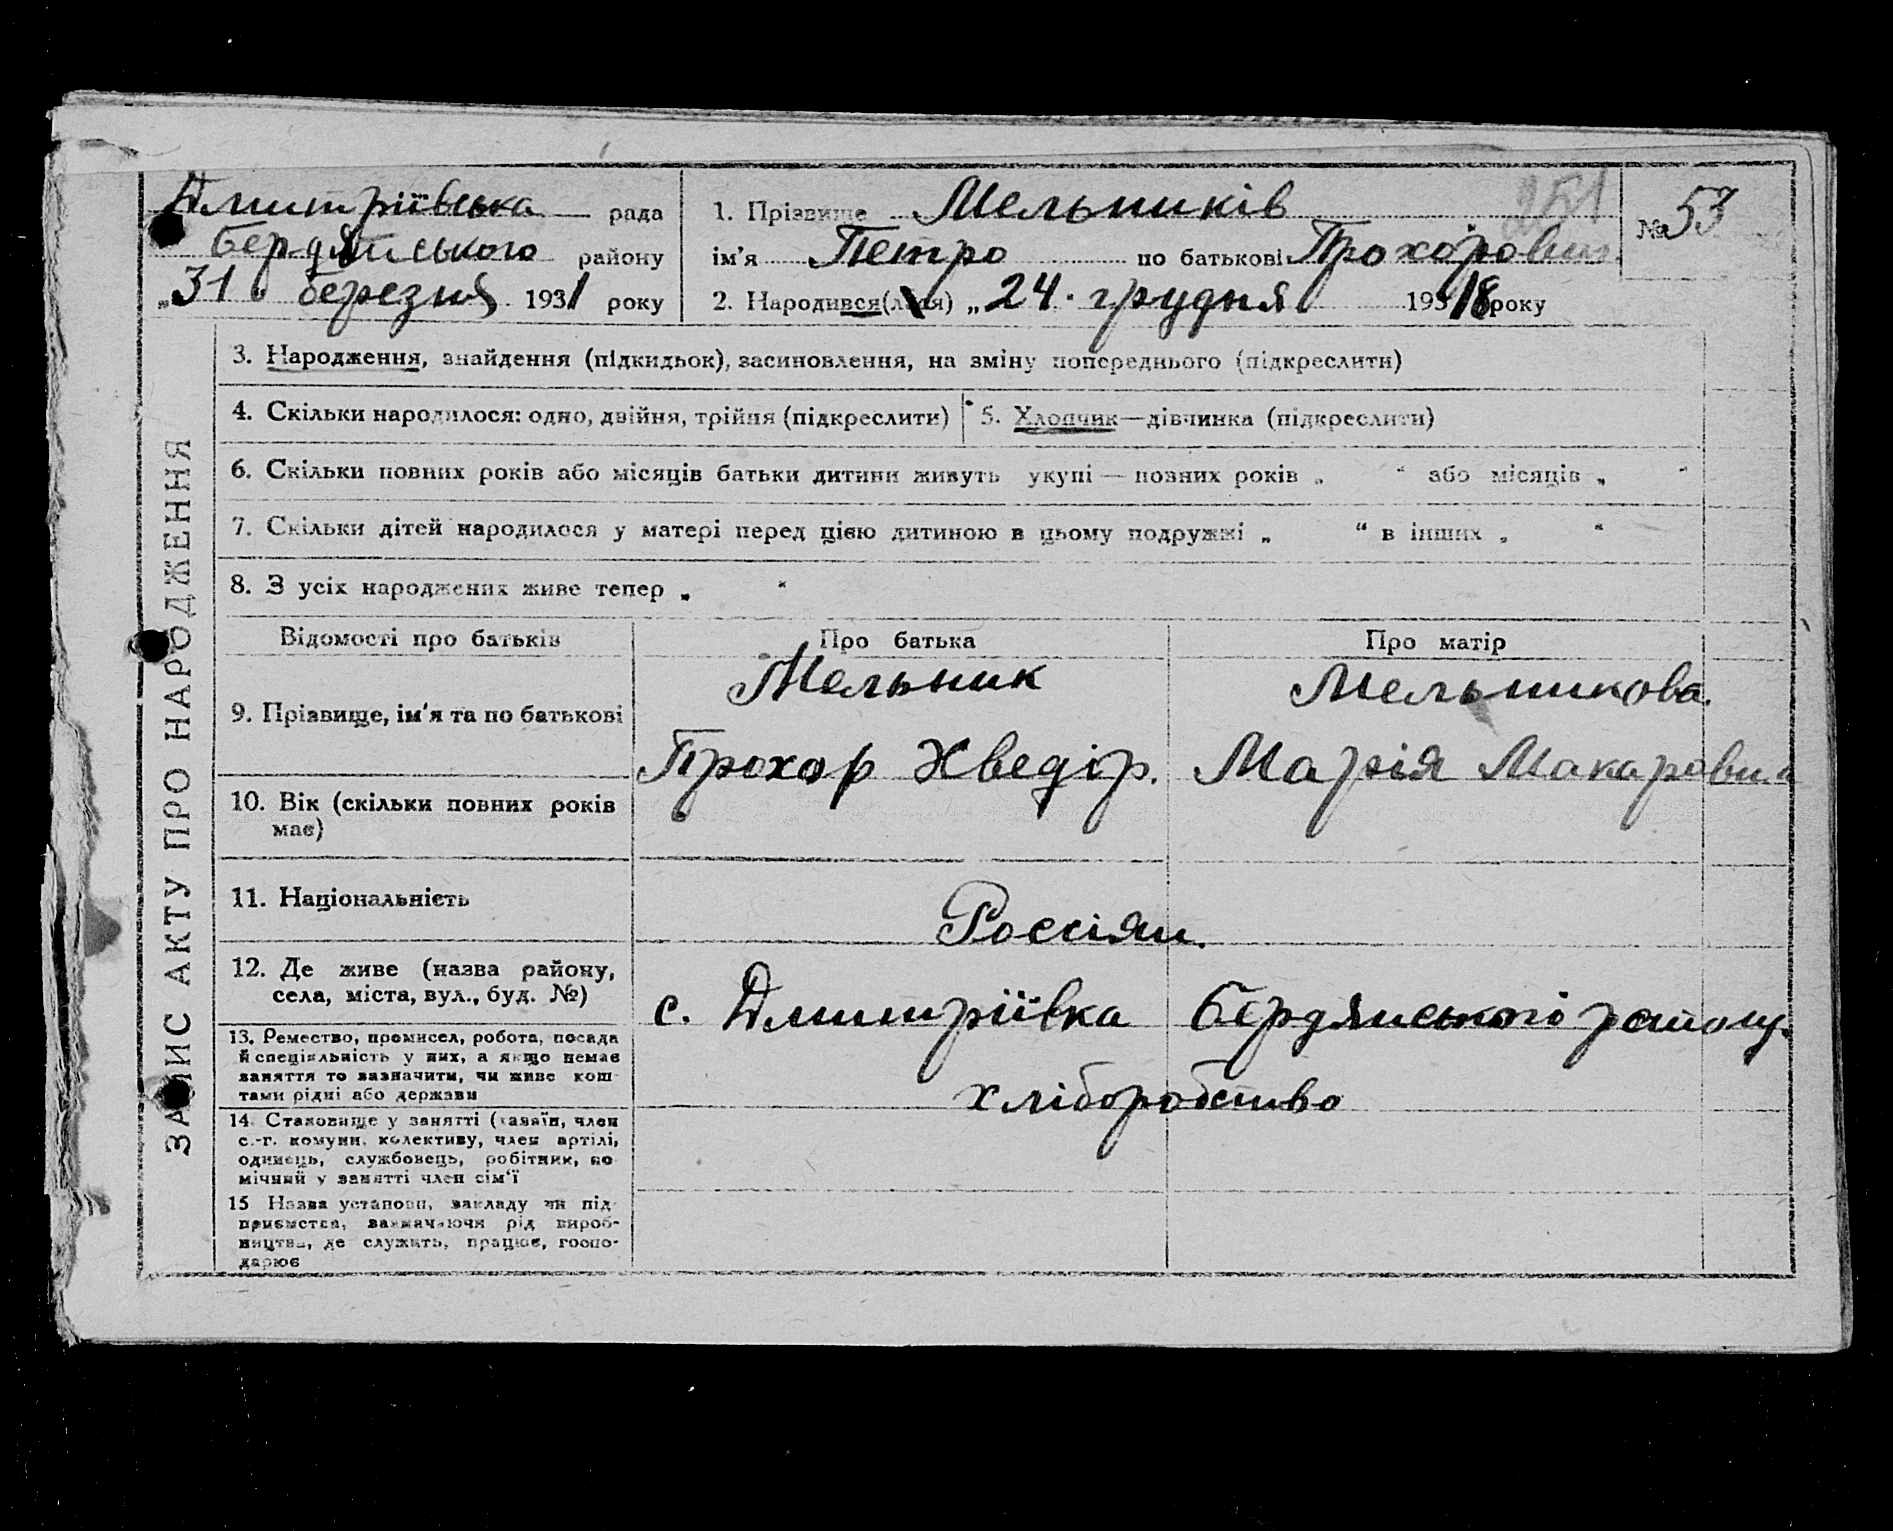 Дмитріївська рада
Бердянського району
„31" березня 1931 року
1. Прізвище Мельників
ім'я Петро по батькові Прохорович
2. Народився(лася) „24. грудня 1918 року
№ 53
251
ЗАПИС АКТУ ПРО НАРОДЖЕННЯ
3. Народження, знайдення (підкидьок), засиновлення, на зміну попереднього (підкреслити)
4. Скільки народилося: одно, двійня, трійня (підкреслити)
5. Хлопчик—дівчинка (підкреслити)
6. Скільки повних років або місяців батьки дитини живуть укупі — повних років „ “ або місяців „ “
7. Скільки дітей народилося у матері перед цією дитиною в цьому подружжі „ “ в інших „ “
8. З усіх народжених живе тепер „ “
Відомості про батьків
Про батька
Про матір
9. Прізвище, ім'я та по батькові
Мельник
Прохор Хведір.
Мельникова.
Марія Макаровна
10. Вік (скільки повних років
має)
11. Національність
Россіян.
12. Де живе (назва району,
села, міста, вул., буд. №)
с. Дмитріївка Бердянського району.
13. Ремество, промисел, робота, посада
й спеціяльність у них, а якщо немає
заняття то зазначити, чи живе кош-
тами рідні або держави
хліборобство
14. Становище у занятті (хазяїн, член
с.-г. комуни, колективу, член артілі,
одинець, службовець, робітник, по-
мічний у занятті член сім'ї
15 Назва установи, закладу чи під-
приємства, зазначаючи рід вироб-
ництва, де служить, працює, госпо-
дарює